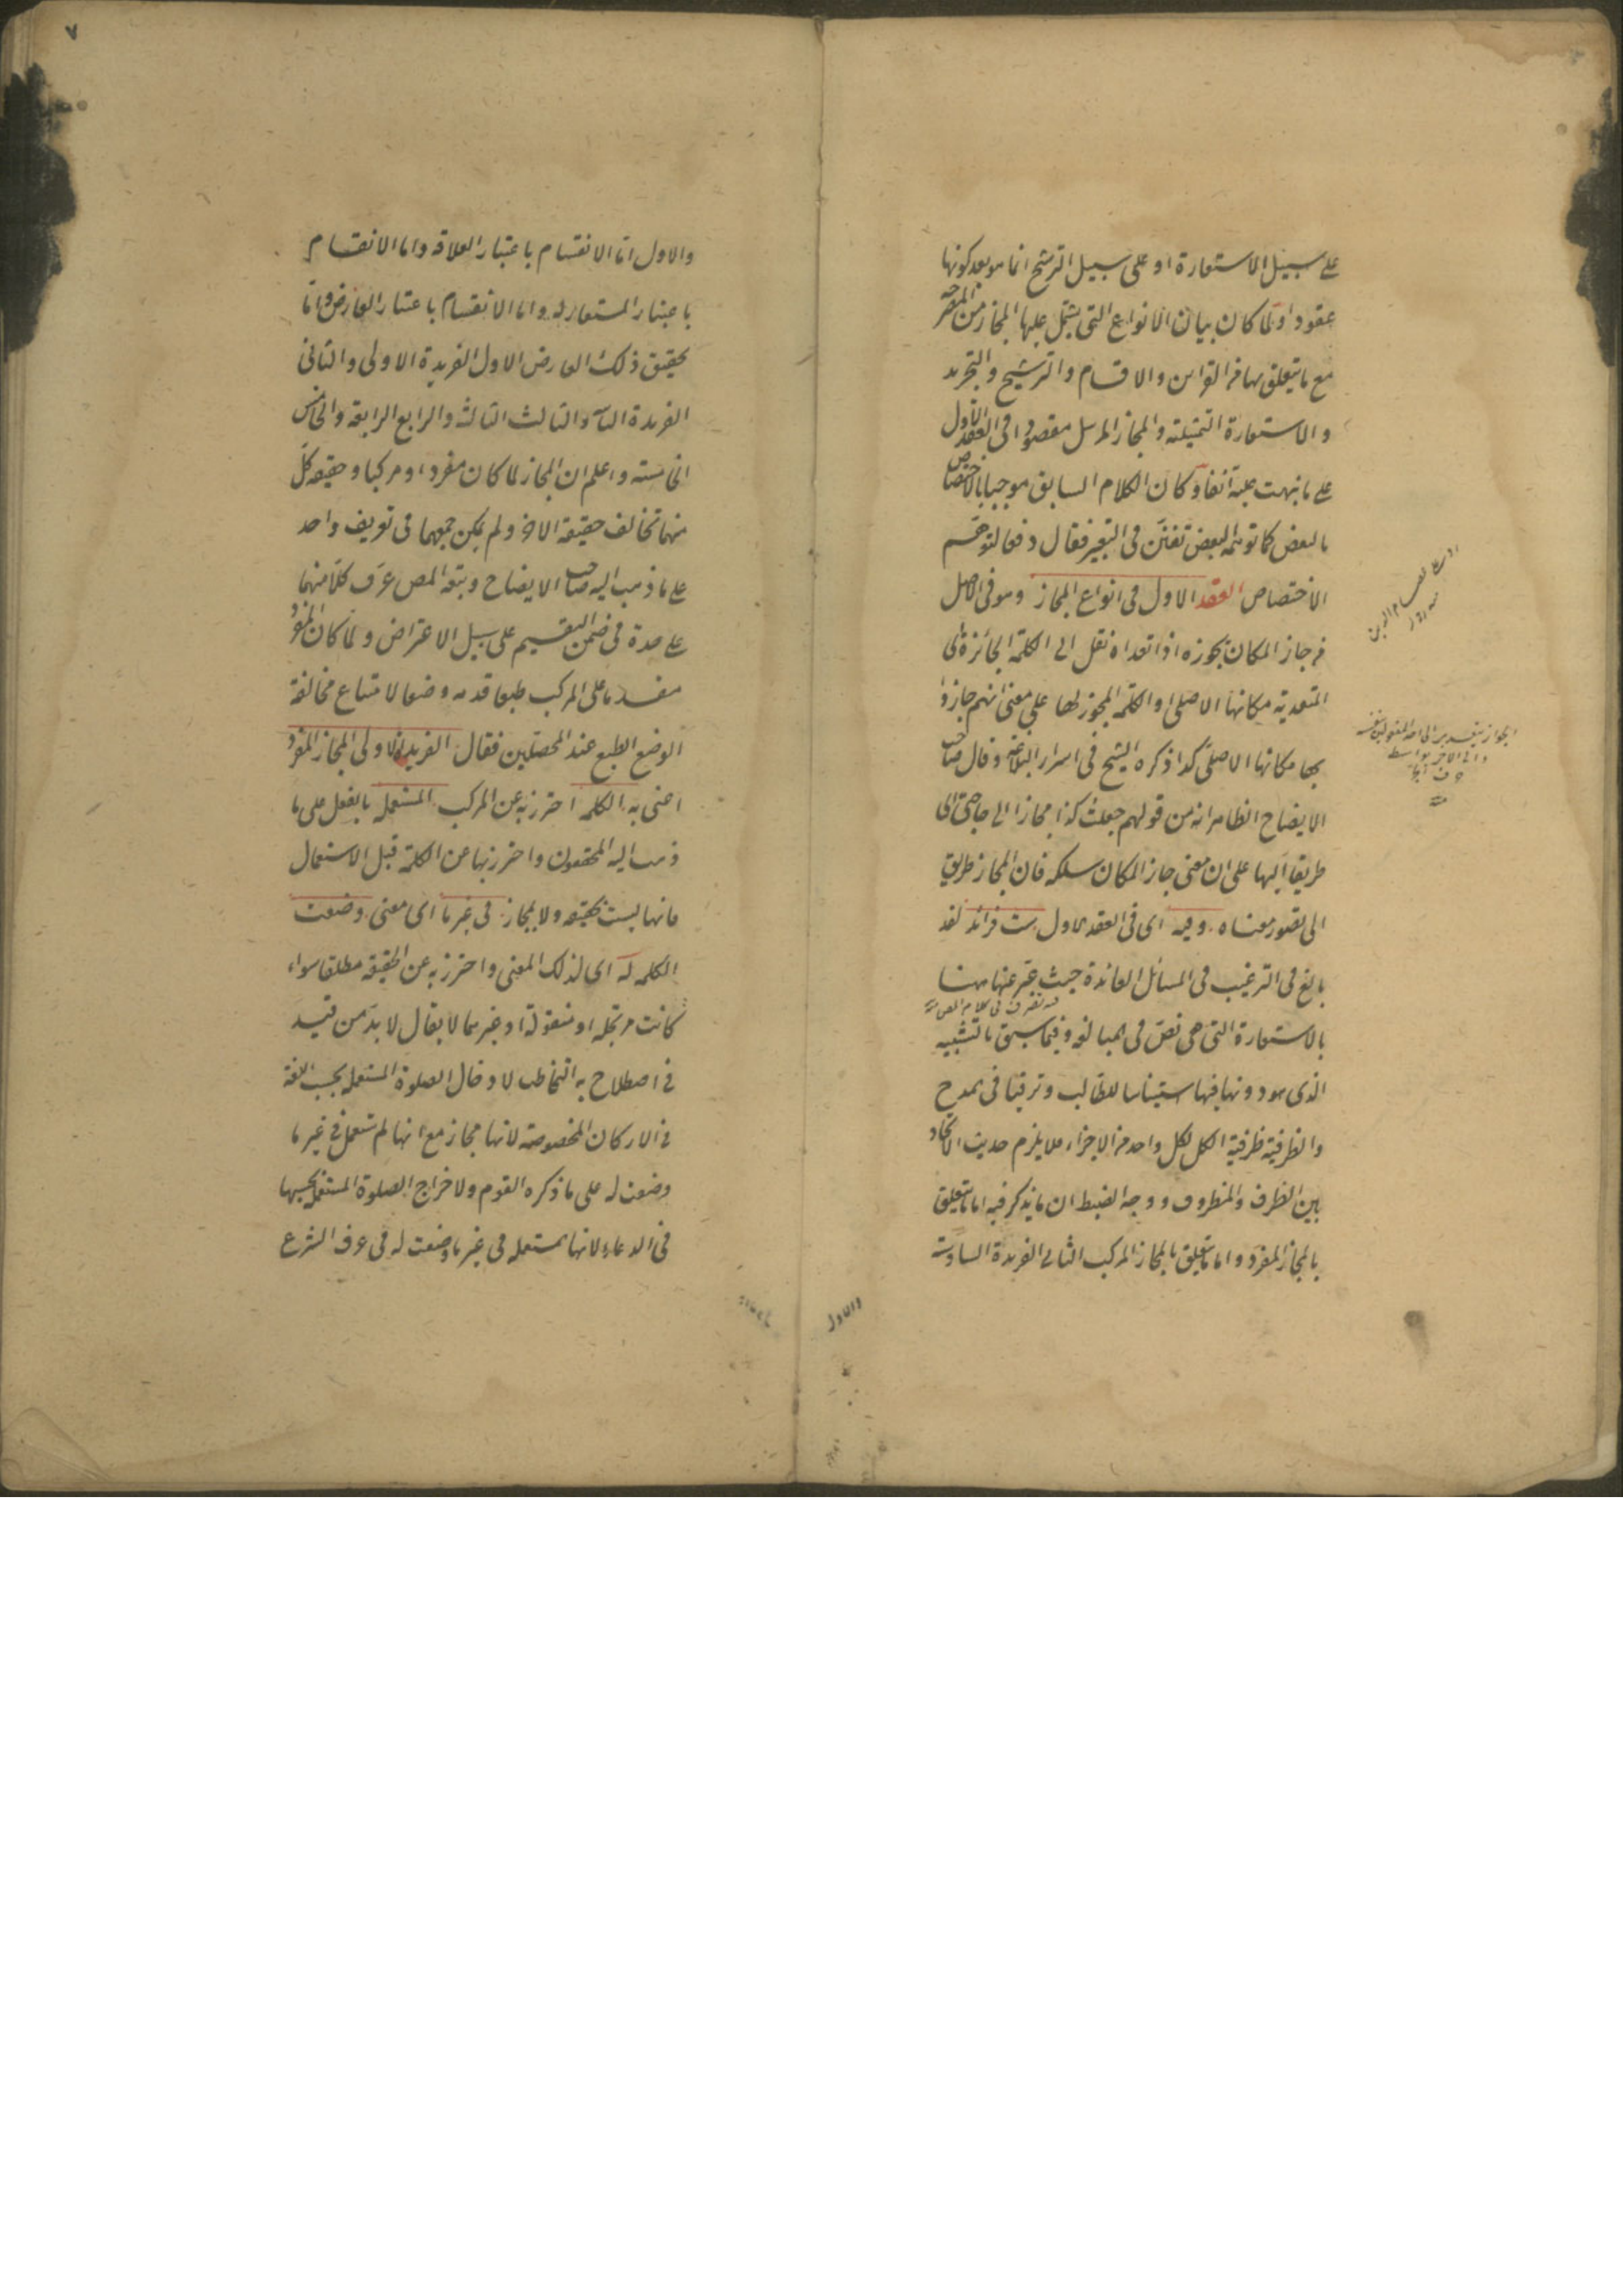 على سبيل الاستعارة او على سبيل الترشيح انما هو بعد كونها
عقودا ولما كان بيان الانواع التى يشتمل عليها المجاز من المصرحة
مع ما يتعلق بها من القراين والاقسام والترشيح والتجريد
والاستعارة التمثيلية والمجاز المرسل مقصودا فى العقد الاول
على ما نبهت عليه آنفا وكان الكلام السابق موجبا بالاختصاص
بالبعض كما توهمه البعض تفنن فى التعبير فقال دفعا لتوهم
الاختصاص العقد الاول فى انواع المجاز وهو فى الاصل
من جاز المكان يجوزه اذا تعداه نقل الى الكلمة الجائزة اى
المتعدية مكانها الاصلى او الكلمة المجوز لها على معنى انهم جازوا
بها مكانها الاصلى كذا ذكره الشيخ فى اسرار البلاغة وقال صاحب
الايضاح الظاهر انه من قولهم جعلت كذا مجازا الى حاجتى اى
طريقا اليها على ان معنى جاز المكان سلكه فان المجاز طريق
الى تصور معناه وفيه اى فى العقد الاول ست فرائد لقد
بالغ فى الترغيب فى المسائل العائدة حيث عبر عنها ههنا
فيه تصرف فى كلام المص
بالاستعارة التى هى نص فى المبالغة وفيما سبق بالتشبيه
الذى هو دونها فيها استيناسا للطالب وترقيا فى المدح
والظرفية ظرفية الكل لكل واحد من الاجزاء فلا يلزم حديث الاتحاد
بين الظرف والمظروف ووجه الضبط ان ما يذكر فيه اما يتعلق
بالمجاز المفرد واما يتعلق بالمجاز المركب الثانى الفريدة السادسة
والاول
والاول اما الانقسام باعتبار العلاقة واما الانقسام
باعتبار المستعار له واما الانقسام باعتبار العارض واما
تحقيق ذلك العارض الاول الفريدة الاولى والثانى
الفريدة الثانية والثالث الثالثة والرابع الرابعة والخامس
الخامسة واعلم ان المجاز لما كان مفردا ومركبا وحقيقة كل
منهما تخالف حقيقة الاخر ولم يمكن جمعهما فى تعريف واحد
على ما ذهب اليه صاحب الايضاح وتبعه المص عرف كلا منهما
على حدة فى ضمن التقسيم على سبيل الاعتراض ولما كان المفرد
مقدما على المركب طبعا قدمه وضعا لامتناع مخالفة
الوضع الطبع عند المحصلين فقال الفريدة الاولى المجاز المفرد
اعنى به الكلمة احترز به عن المركب المستعملة بالفعل على ما
ذهب اليه المحققون واحترز بها عن الكلمة قبل الاستعمال
فانها ليست بحقيقة ولا بمجاز فى غير ما اى معنى وضعت
الكلمة له اى لذلك المعنى واحترز به عن الحقيقة مطلقا سواء
كانت مرتجلة او منقولة او غيرهما لا يقال لا بد من قيد
فى اصطلاح به التخاطب لادخال الصلوة المستعملة بحسب اللغة
فى الاركان المخصوصة لانها مجاز مع انها لم تستعمل فى غير ما
وضعت له على ما ذكره القوم ولاخراج الصلوة المستعملة بحسبها
فى الدعاء لانها مستعملة فى غير ما وضعت له فى عرف الشرع
٧